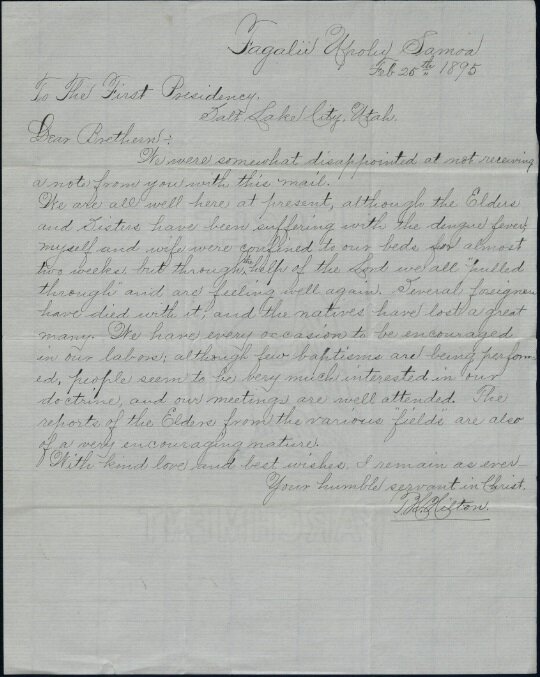 Fagalii Upolu Samoa
Feb 25th 1895
To The First Presidency.
Salt Lake City, Utah.
Dear Brethern:
We were somewhat disappointed at not receiving
a note from you with this mail.
We are all well here at present, although the Elders
and Sisters have been suffering with the dengue fever,
myself and wife were confined to our beds for almost
two weeks, but through the help of the Lord we all "pulled
through" and are feeling well again. Several foreigners
have died with it, and the natives have lost a great
many. We have every occasion to be encouraged
in our labors; although few baptisms are being perform-
ed, people seem to be very much interested in our
doctrine, and our meetings are well attended. The
reports of the Elders from the various "fields" are also
of a very encouraging nature.
With kind love and best wishes, I remain as ever
Your humble servant in Christ.
T. H. Hilton.